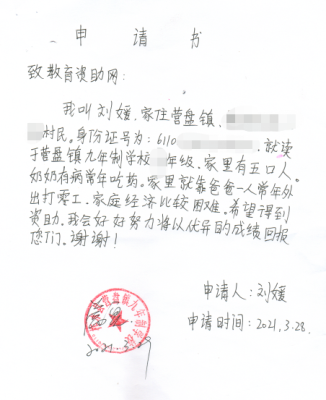 申请书
致教育资助网：
我叫刘媛，家住营盘镇，
村民。身份证号为：6110 ，就读
于营盘镇九年制学校 年级，家里有五口人。
奶奶有病常年吃药。家里就靠爸爸一人常年外
出打零工，家庭经济比较困难。希望得到
资助。我会好好努力将以优异的成绩回报
您们。谢谢！
申请人：刘媛
申请时间：2021.3.28.
营盘镇九年制学校
2021.3.29